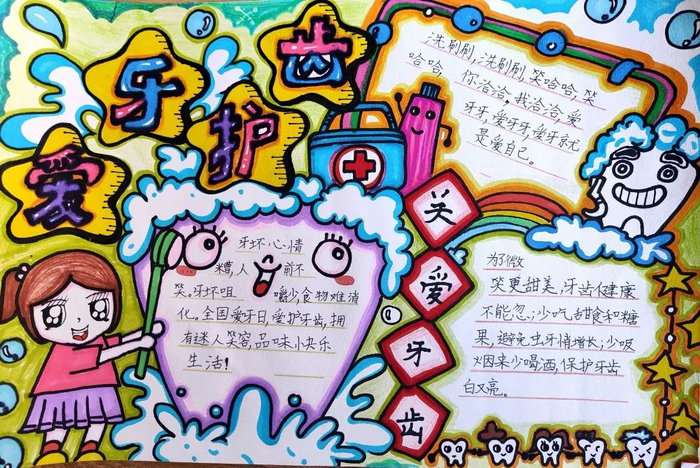 爱牙护齿
洗刷刷,洗刷刷,笑哈哈,笑
哈哈,
你洽洽,我洽洽,爱
牙牙,爱牙牙,爱牙就
是爱自己。
牙坏心情
糟,人前不
笑。牙坏咀嚼少,食物难消
化。全国爱牙日,爱护牙齿,拥
有迷人笑容,品味小快乐
生活!
关
爱
牙
齿
为了微
笑更甜美,牙齿健康
不能忽;少吃甜食和糖
果,避免虫牙悄增长;少吸
烟来少喝酒,保护牙齿
白又亮。